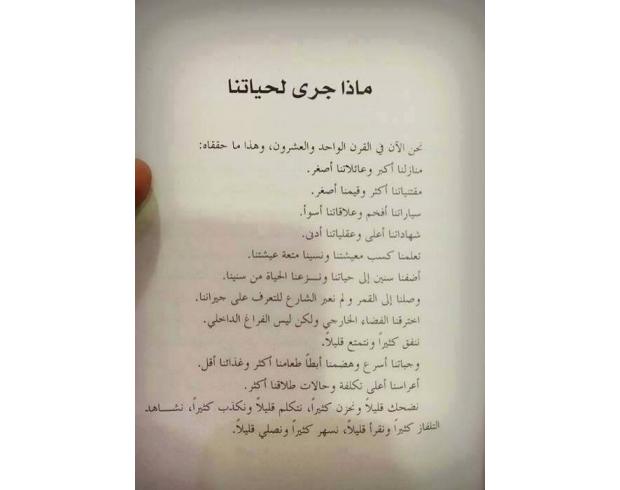 ماذا جرى لحياتنا
نحن الآن في القرن الواحد والعشرون، وهذا ما حققاه:
منازلنا أكبر وعائلاتنا أصغر.
مقتنياتنا أكثر وقيمنا أصغر.
سياراتنا أفخم وعلاقاتنا أسوأ.
شهاداتنا أعلى وعقلياتنا أدنى.
تعلمنا كسب معيشتنا ونسينا متعة عيشتنا.
أضفنا سنين إلى حياتنا ونـزعنا الحياة من سنينا.
وصلنا إلى القمر و لم نعبر الشارع للتعرف على جيراننا.
اخترقنا الفضاء الخارجي ولكن ليس الفراغ الداخلي.
ننفق كثيراً ونتمتع قليلاً.
وجباتنا أسرع وهضمنا أبطأ طعامنا أكثر وغذائنا أقل.
أعراسنا أعلى تكلفة وحالات طلاقنا أكثر.
نضحك قليلاً ونحزن كثيراً، نتكلم قليلاً ونكذب كثيراً، نشـاهد
التلفاز كثيراً ونقرأ قليلاً، نسهر كثيراً ونصلي قليلاً.